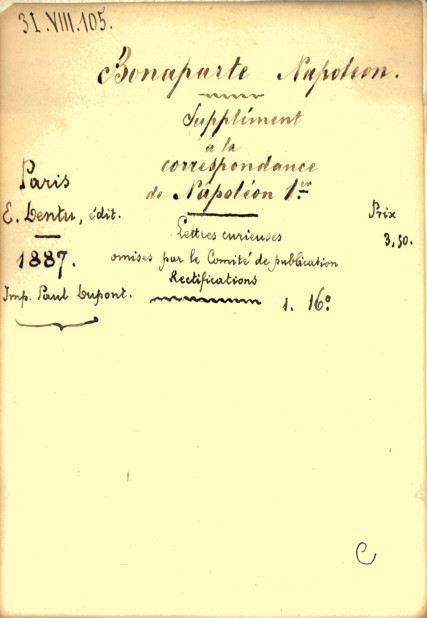 31.VIII.105.
Bonaparte Napoleon.
Supplément
à la
correspondance
de Napoléon 1.er
Paris
E. Dentu, édit.
1887.
Imp. Paul Dupont.
Lettres curieuses
omises par le Comité de publication
Rectifications
1. 16º
Prix
3,50.
C